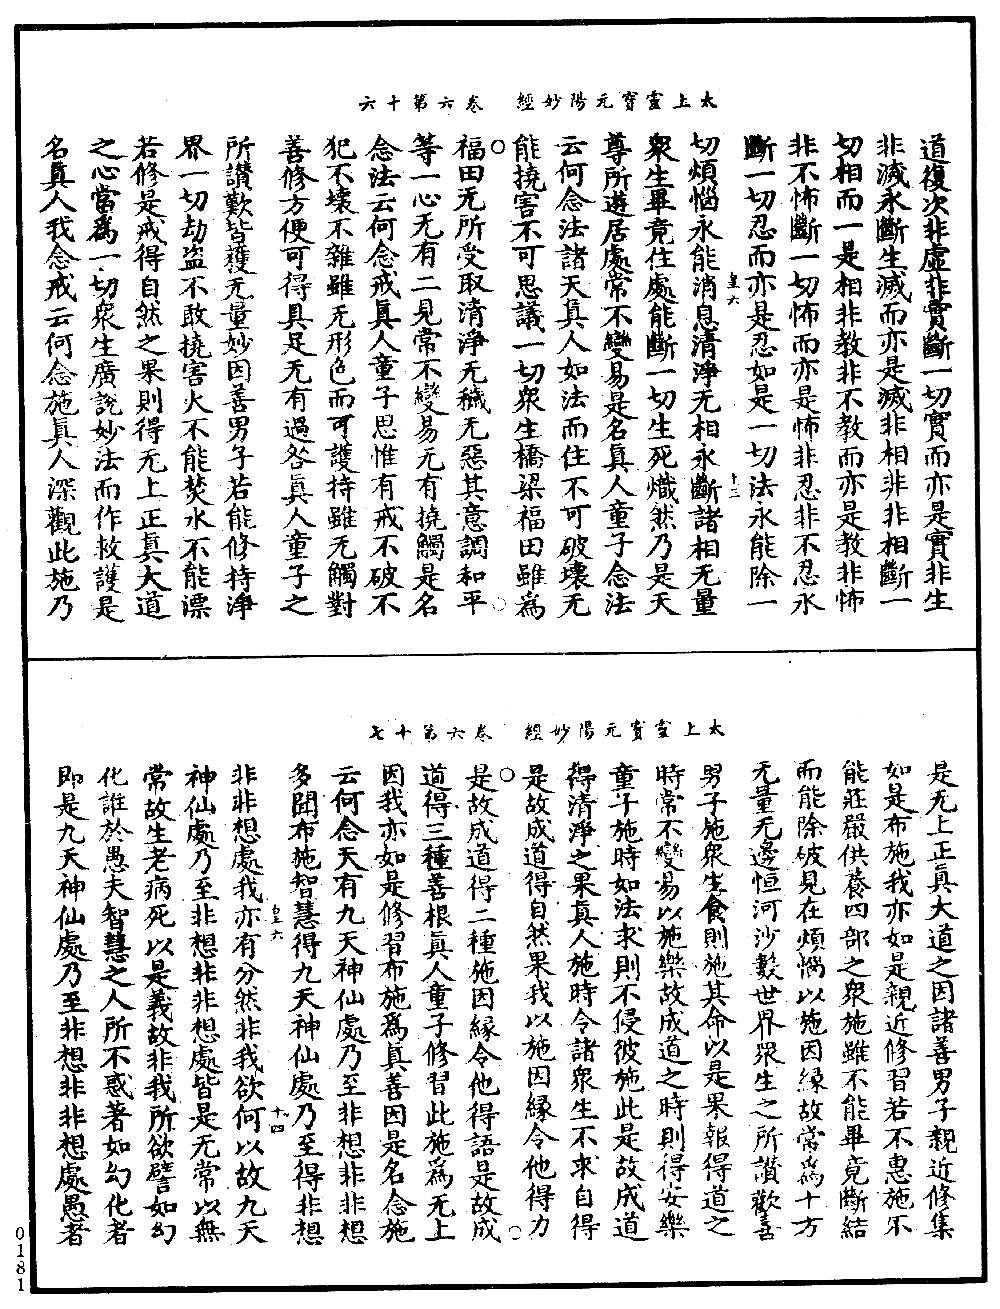 太上靈寶元陽妙經　卷六第十六
道復次非虛非實斷一切實而亦是實非生
非滅永斷生滅而亦是滅非相非非相斷一
切相而一是相非教非不教而亦是教非怖
非不怖斷一切怖而亦是怖非忍非不忍永
斷一切忍而亦是忍如是一切法永能除一
皇六　十三
切煩惱永能消息清淨无相永斷諸相无量
衆生畢竟住處能斷一切生死熾然乃是天
尊所遊居處常不變易是名真人童子念法
云何念法諸天真人如法而住不可破壞无
能撓害不可思議一切衆生橋梁福田雖為
福田无所受取清淨无穢无惡其意調和平
等一心无有二見常不變易无有撓觸是名
念法云何念戒真人童子思惟有戒不破不
犯不壞不雜雖无形色而可護持雖无觸對
善修方便可得具足无有過咎真人童子之
所讚歎皆獲无量妙因善男子若能修持淨
界一切劫盜不敢撓害火不能焚水不能漂
若修是戒得自然之果則得无上正真大道
之心當為一切衆生廣說妙法而作救護是
名真人我念戒云何念施真人深觀此施乃
太上靈寶元陽妙經　卷六第十七
是无上正真大道之因諸善男子親近修集
如是布施我亦如是親近修習若不惠施不
能莊嚴供養四部之衆施雖不能畢竟斷結
而能除破見在煩惱以施因緣故常為十方
无量无邊恒河沙數世界衆生之所讚歎善
男子施衆生食則施其命以是果報得道之
時常不變易以施樂故成道之時則得安樂
童子施時如法求則不侵彼施此是故成道
得清淨之果真人施時令諸衆生不求自得
是故成道得自然果我以施因緣令他得力
是故成道得二種施因緣令他得語是故成
道得三種善根真人童子修習此施為无上
因我亦如是修習布施為真善因是名念施
云何念天有九天神仙處乃至非想非非想
多聞布施智慧得九天神仙處乃至得非想
皇六　十四
非非想處我亦有分然非我欲何以故九天
神仙處乃至非想非非想處皆是无常以無
常故生老病死以是義故非我所欲譬如幻
化誰於愚夫智慧之人所不惑著如幻化者
即是九天神仙處乃至非想非非想處愚者
0181